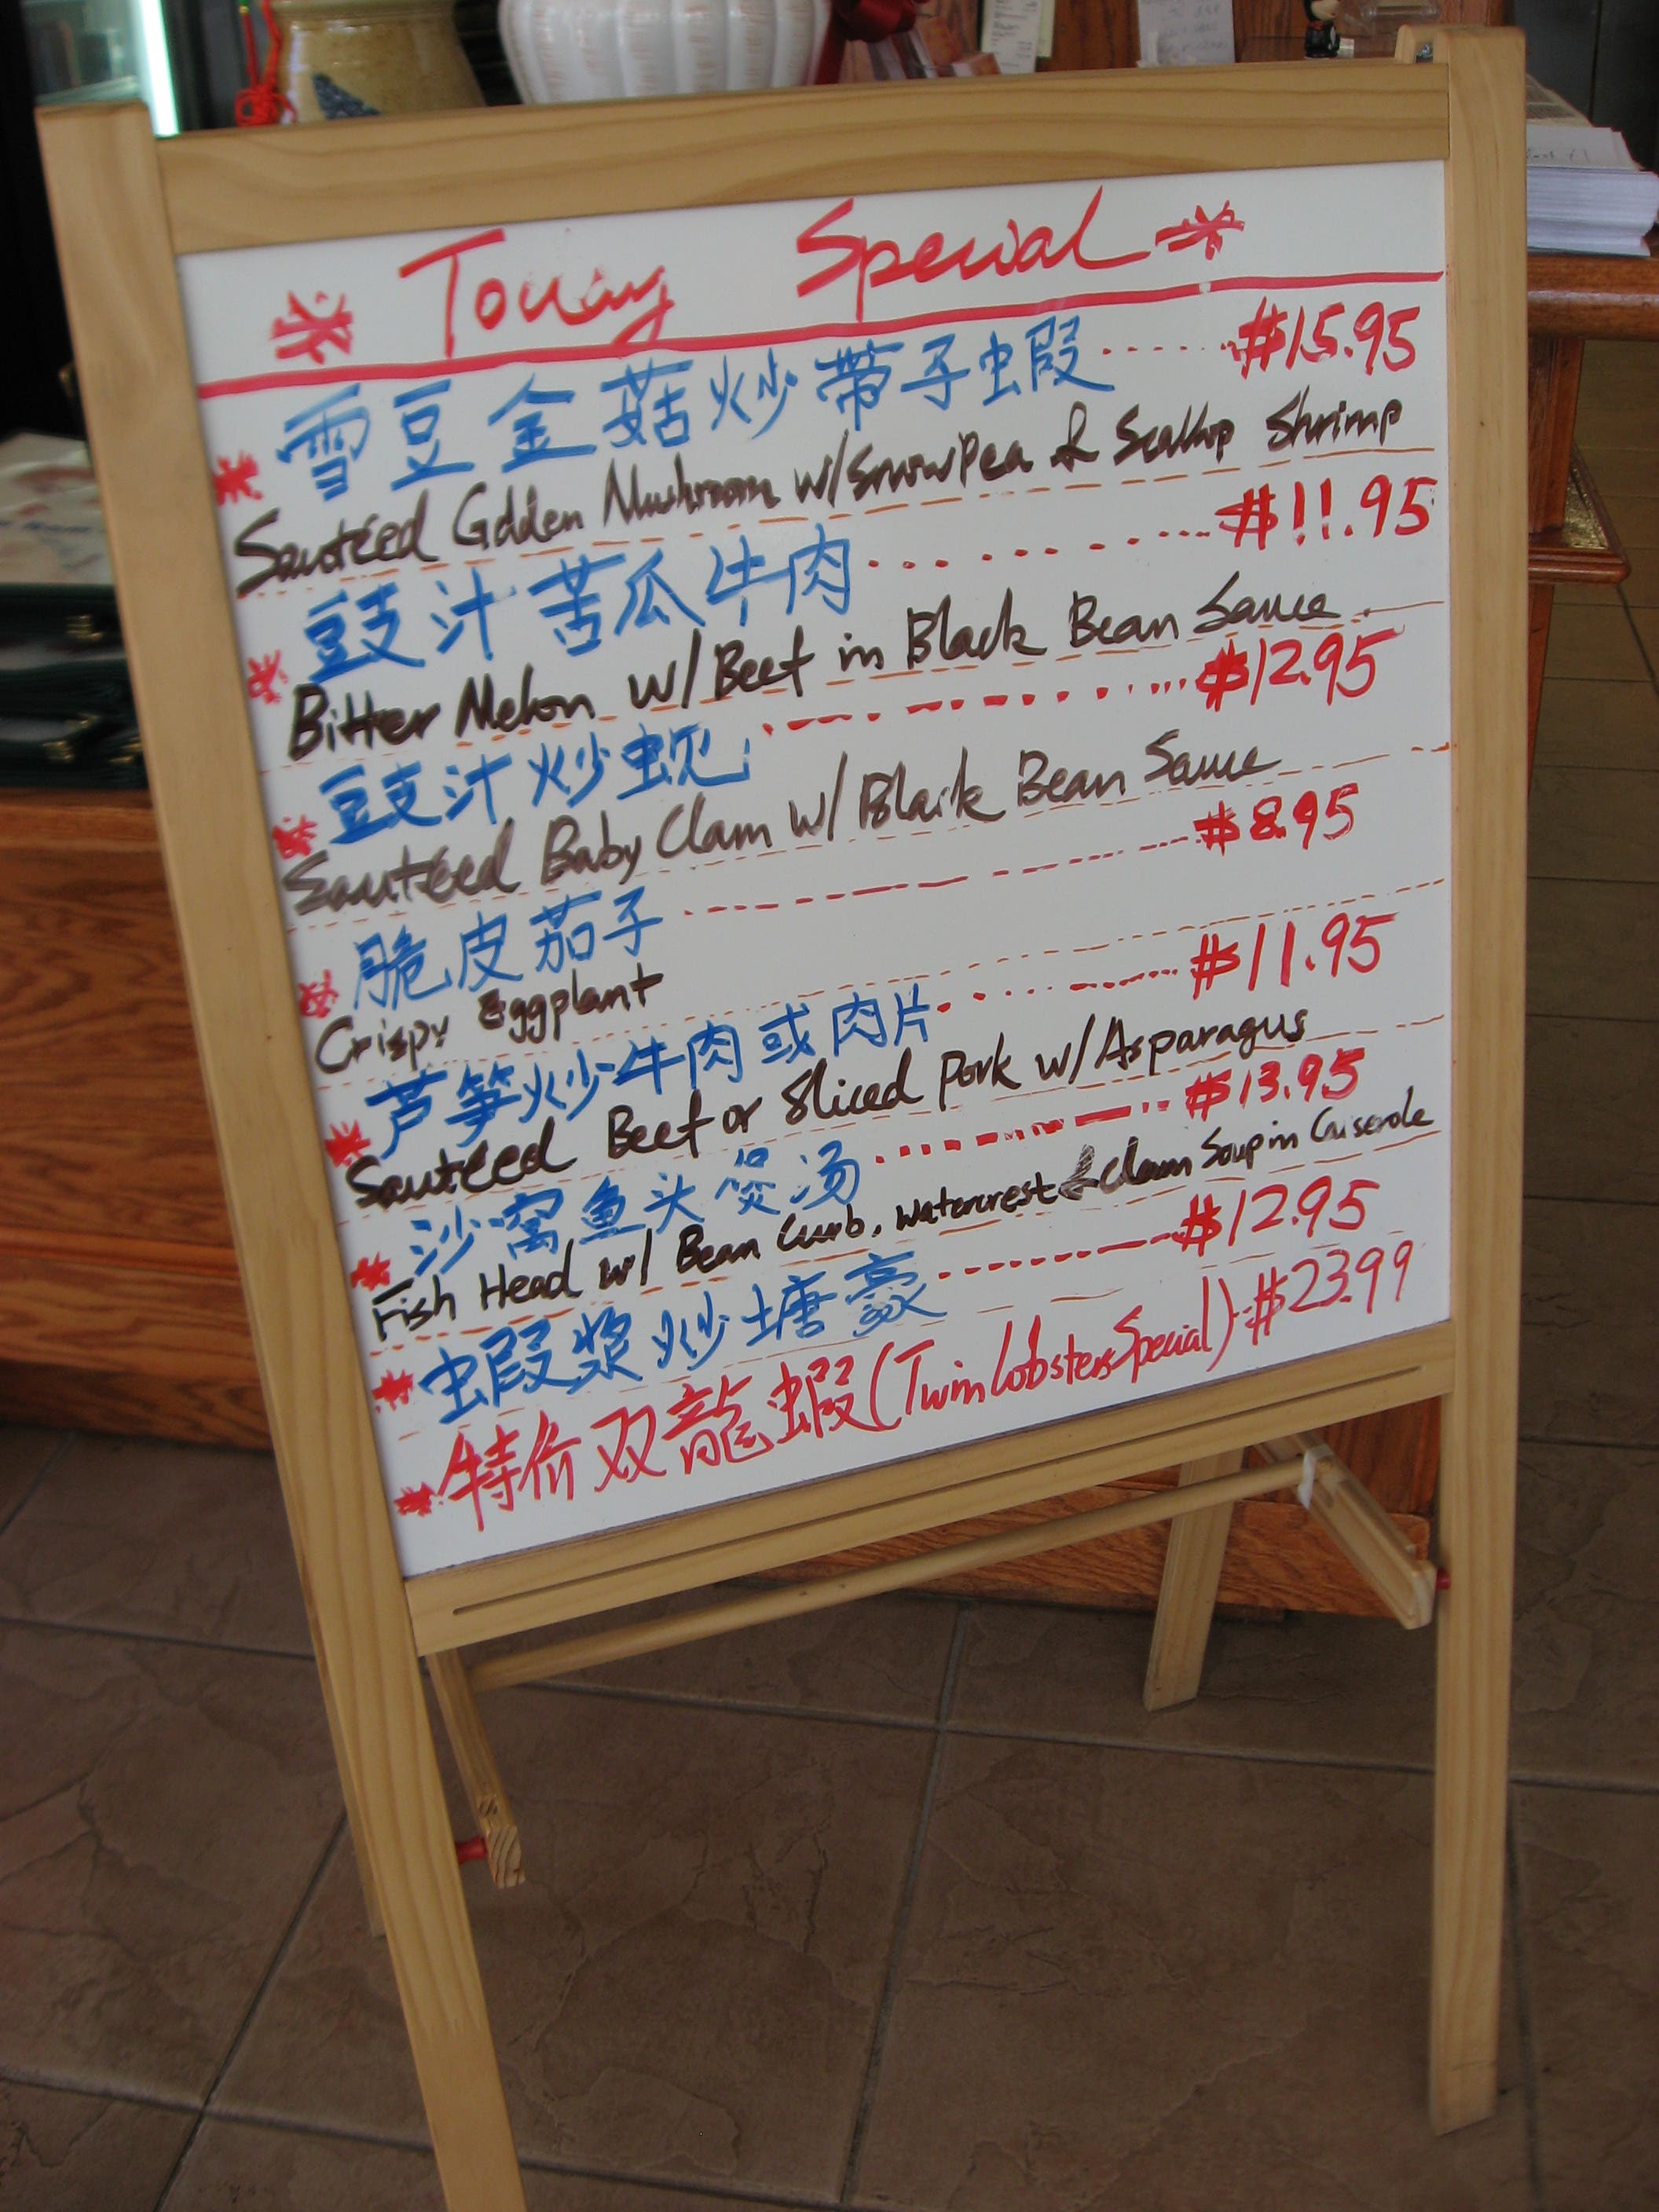 * Today Special *
* 雪豆金菇炒带子虫叚 ..... $15.95
Sautéed Golden Mushroom w/Snow Pea & Scallop Shrimp
* 豉汁苦瓜牛肉 ..... $11.95
Bitter Melon w/Beef in Black Bean Sauce
* 豉汁炒蚬 ..... $12.95
Sautéed Baby Clam w/ Black Bean Sauce
* 脆皮茄子 ..... $8.95
Crispy Eggplant
* 芦笋炒牛肉或肉片 ..... $11.95
Sautéed Beef or Sliced Pork w/Asparagus
* 沙窝鱼头煲汤 ..... $13.95
Fish Head w/ Bean Curb, Watercrest & Clam Soup in Caiserole
* 蝦浆炒塘豪 ..... $12.95
* 特价双龍蝦(Twin Lobsters Special) $23.99